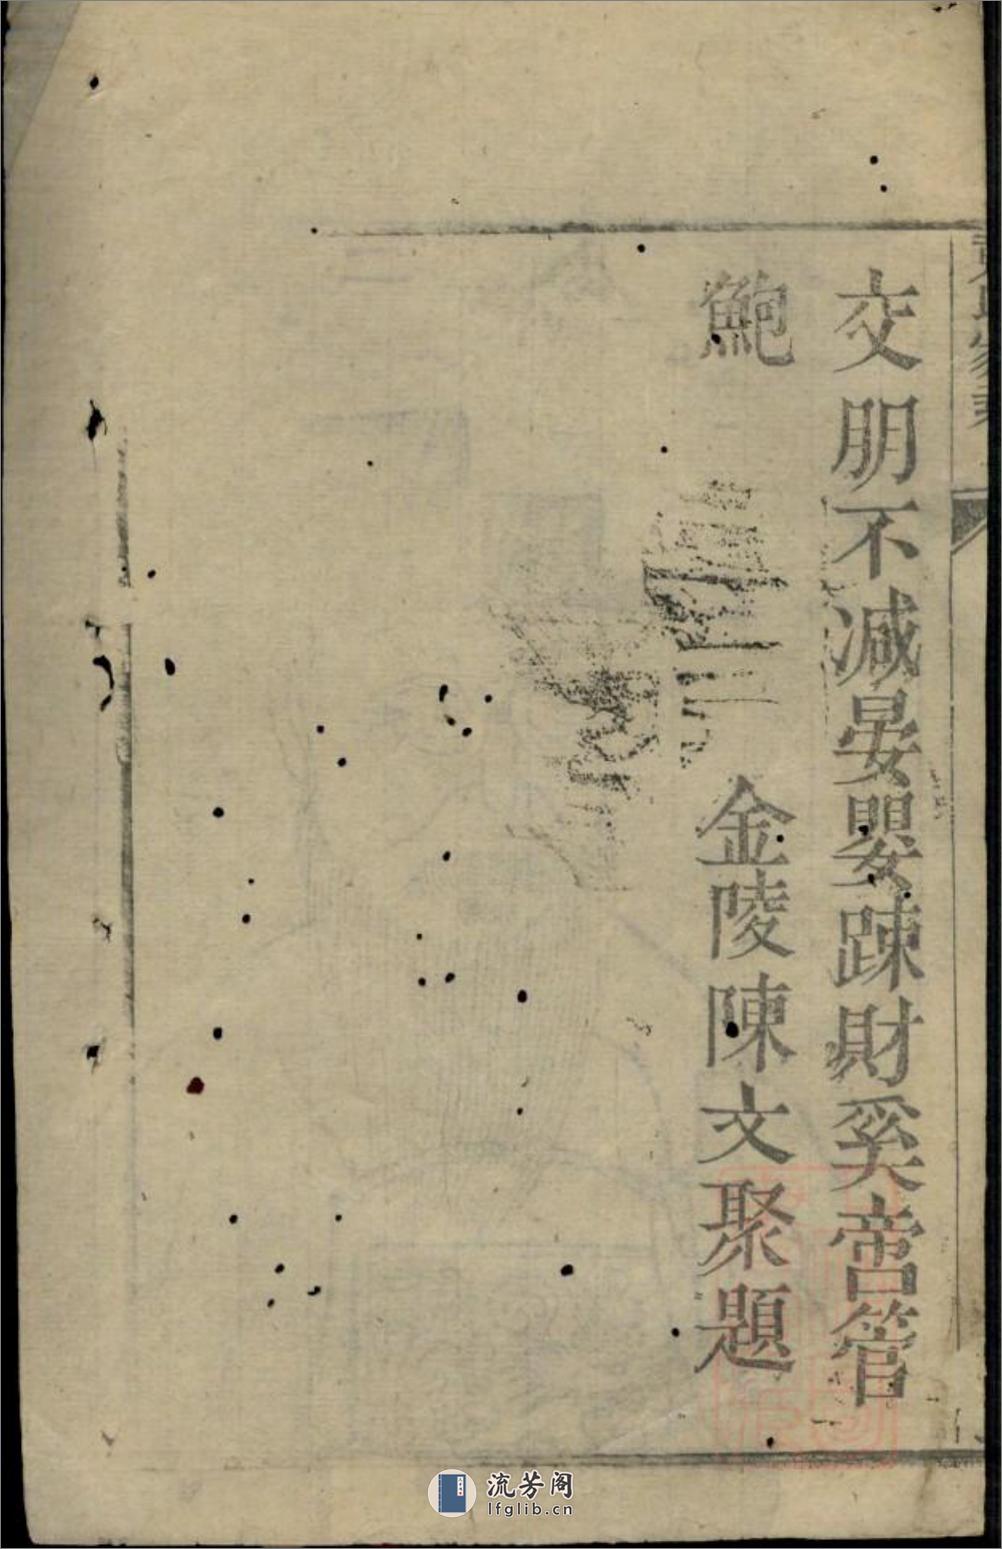 交朋不減晏嬰踈財奚啻管
鮑
金陵陳文聚題
流芳阁
lfglib.cn